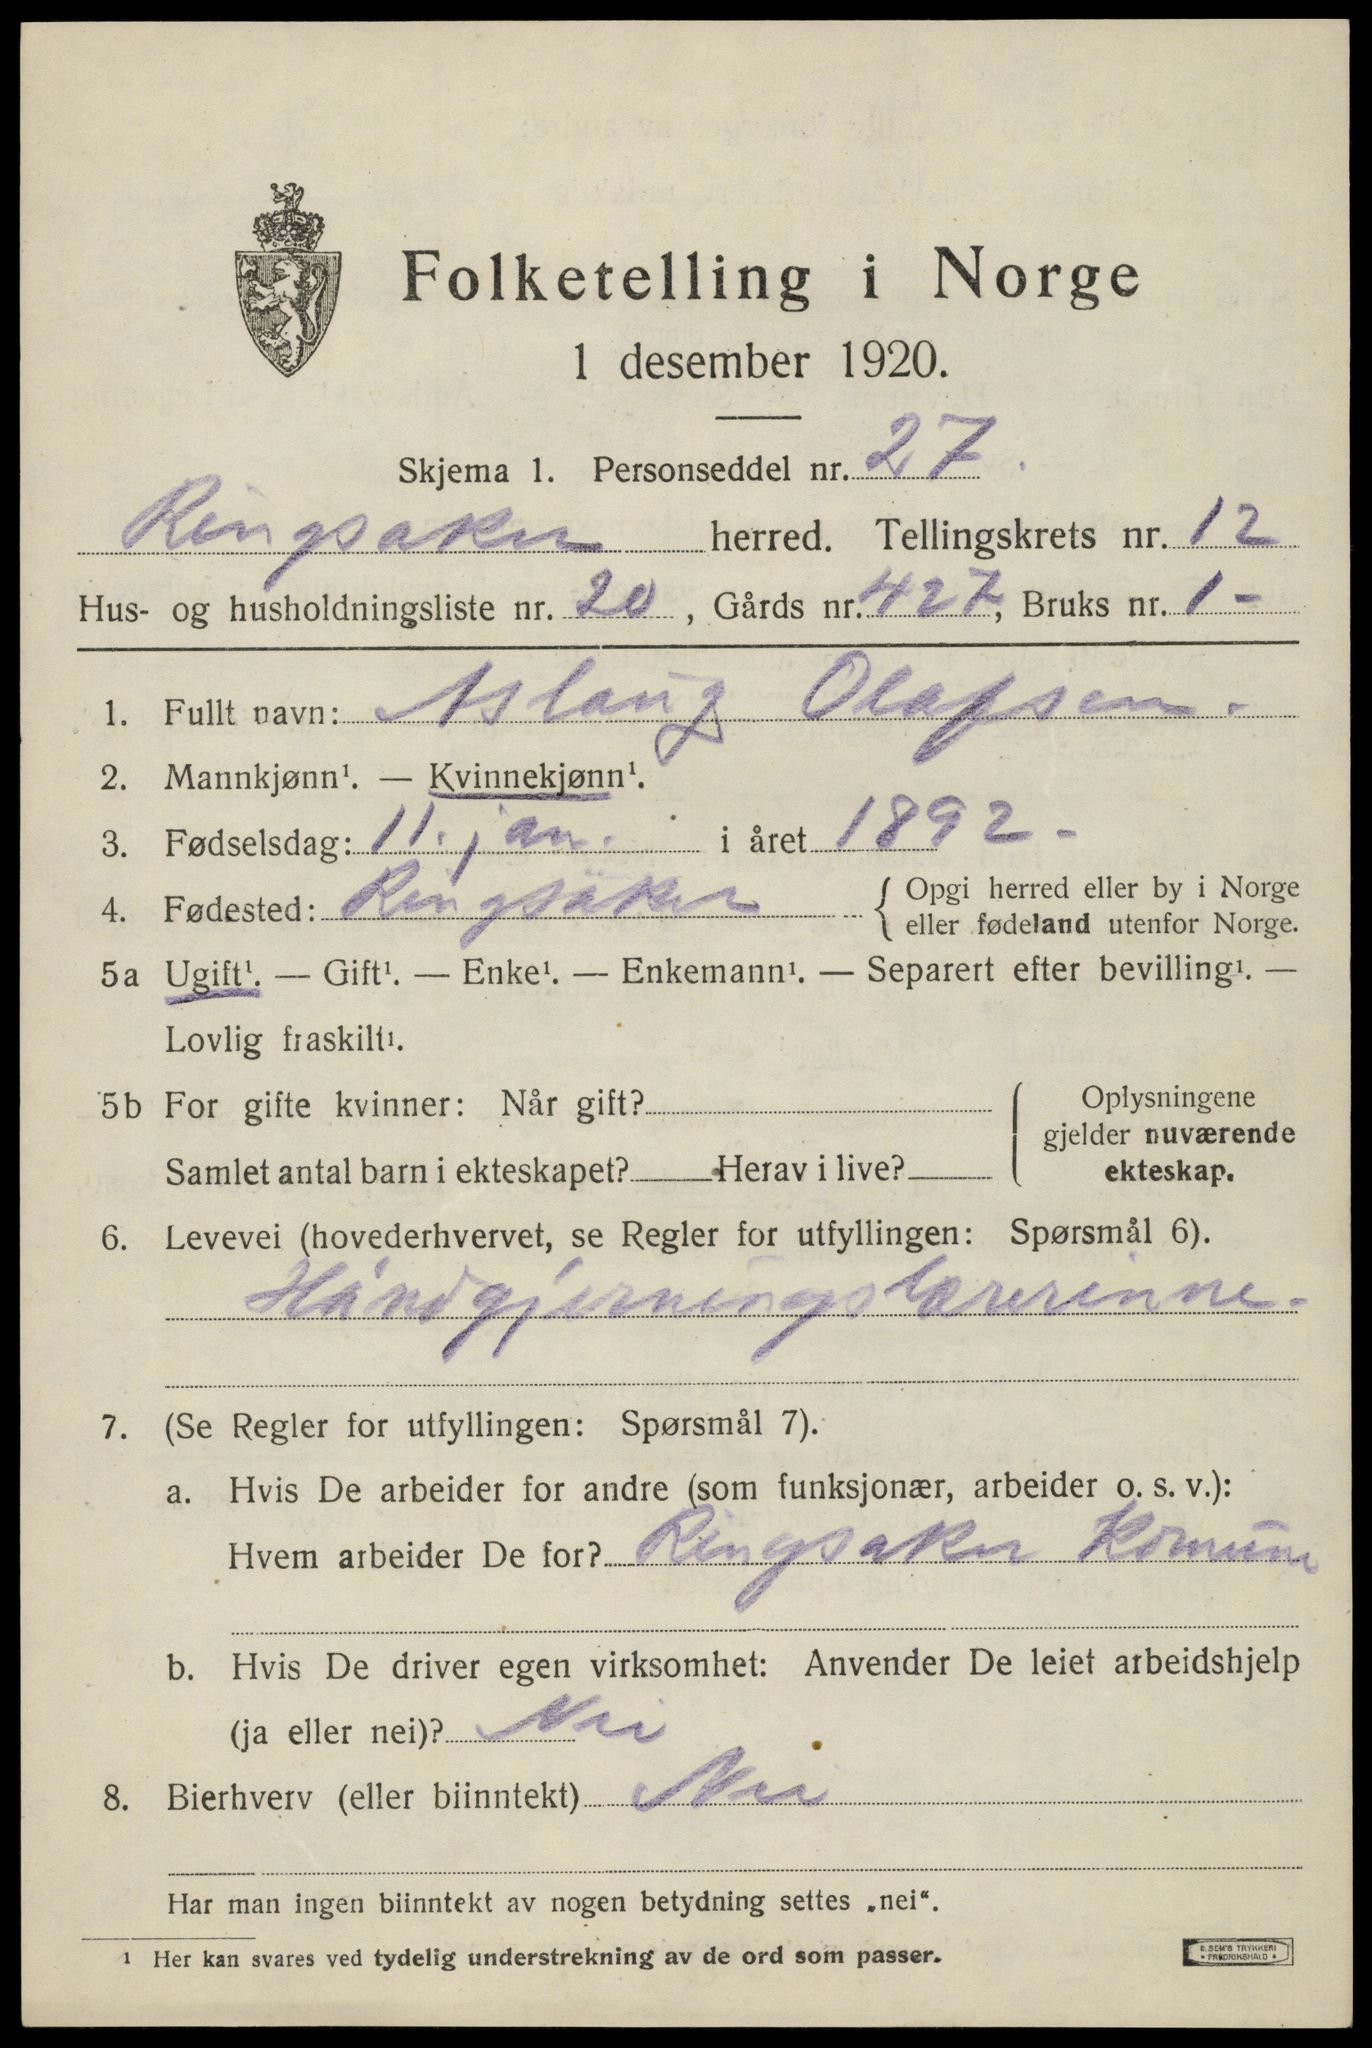 Folketelling i Norge
1 desember 1920.
Skjema 1. Personseddel nr. 27.
Ringsaker herred. Tellingskrets nr. 12
Hus- og husholdningsliste nr. 20, Gårds nr. 427, Bruks nr. 1 -
1. Fullt navn: Aslaug Olafsen.
2. Mannkjønn¹. — Kvinnekjønn¹.
3. Fødselsdag: 11. jan. i året 1892 -
4. Fødested: Ringsaker { Opgi herred eller by i Norge
eller fødeland utenfor Norge.
5a Ugift¹. — Gift¹. — Enke¹. — Enkemann¹. — Separert efter bevilling¹. —
Lovlig fraskilt¹.
5b For gifte kvinner: Når gift?
Samlet antal barn i ekteskapet? Herav i live?
Oplysningene
gjelder nuværende
ekteskap.
6. Levevei (hovederhvervet, se Regler for utfyllingen: Spørsmål 6).
Håndgjerningslærerinne.
7. (Se Regler for utfyllingen: Spørsmål 7).
a. Hvis De arbeider for andre (som funksjonær, arbeider o. s. v.):
Hvem arbeider De for? Ringsaker Komune
b. Hvis De driver egen virksomhet: Anvender De leiet arbeidshjelp
(ja eller nei)? Nei
8. Bierhverv (eller biinntekt) Nei
Har man ingen biinntekt av nogen betydning settes „nei“.
¹ Her kan svares ved tydelig understrekning av de ord som passer.
E. SEM'S TRYKKERI
• FREDRIKSHALD •